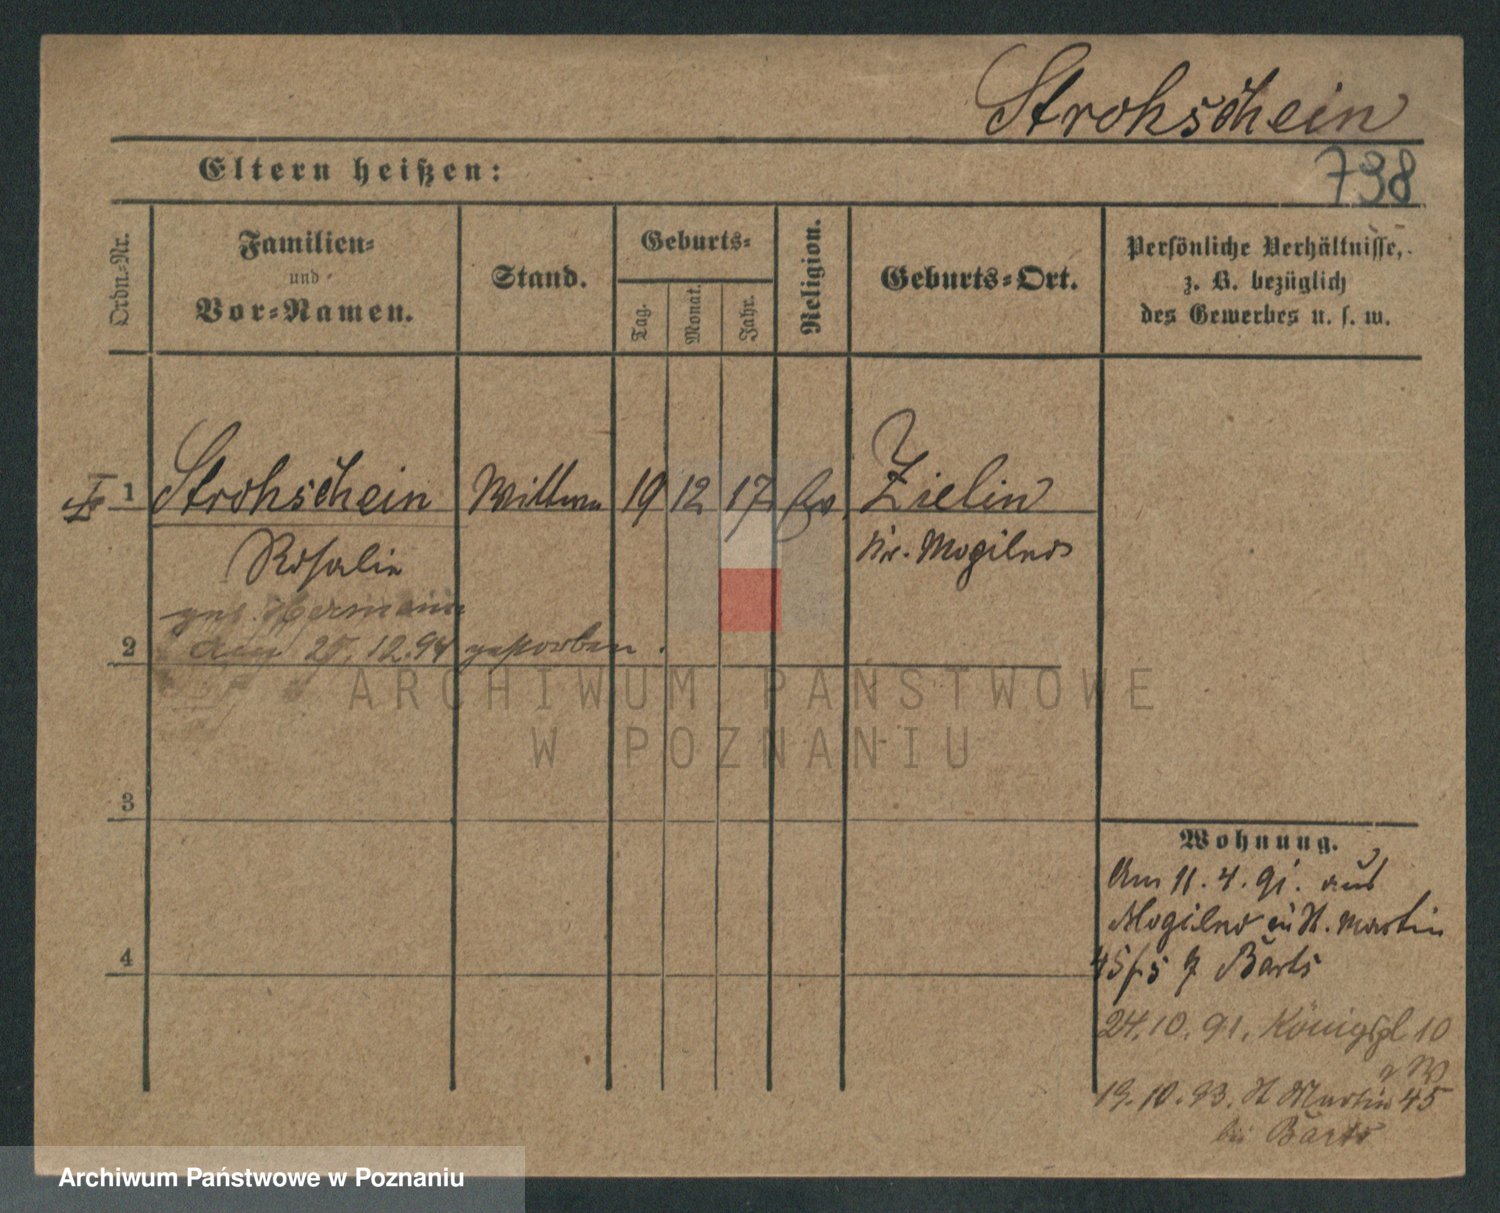 Strohschein
738
Eltern heißen:
Ordn.-Nr.
Familien-
und
Vor-Namen.
Stand.
Geburts-
Tag.
Monat.
Jahr.
Religion.
Geburts-Ort.
Persönliche Verhältnisse,
z. B. bezüglich
des Gewerbes u. s. w.
1 Strohschein Wittwe 19 12 17 Zielin
Rosalie Kr. Mogilno
geb. Hermann
2 am 25.12.94 gestorben.
ARCHIWUM PAŃSTWOWE
W POZNANIU
3
Wohnung.
Am 11.4.91. aus
Mogilno in St. Martin
45/5 Barts
4
24.10.91. Königspl 10
19.10.93. St Martin 45
bei Barts
Archiwum Państwowe w Poznaniu